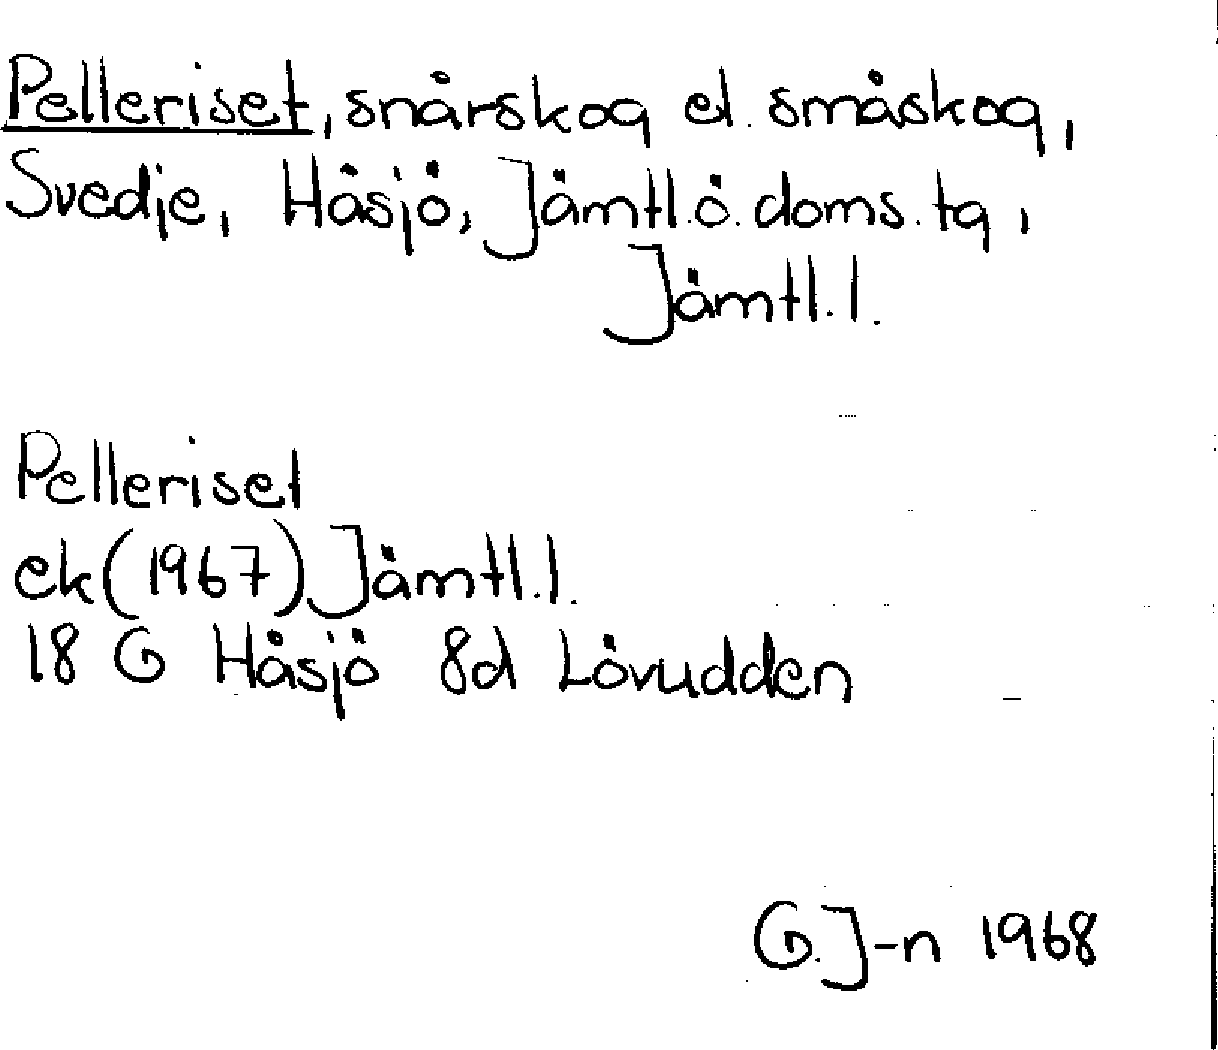 Pelleriset, snårskog el. småskog,
Svedje, Håsjö, Jämtl.ö.doms.tg,
Jämtl.l.
Pelleriset
ek(1967) Jämtl.l.
18 G Håsjö 8d Lövudden
G.J-n 1968